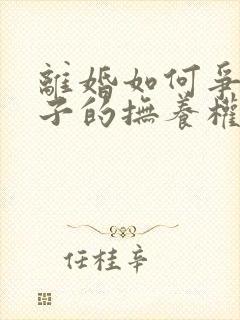 離婚如何爭
子的撫養權
任桂辛